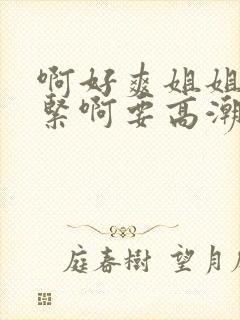 啊好爽姐姐
紧啊要高潮
庭春树 望月